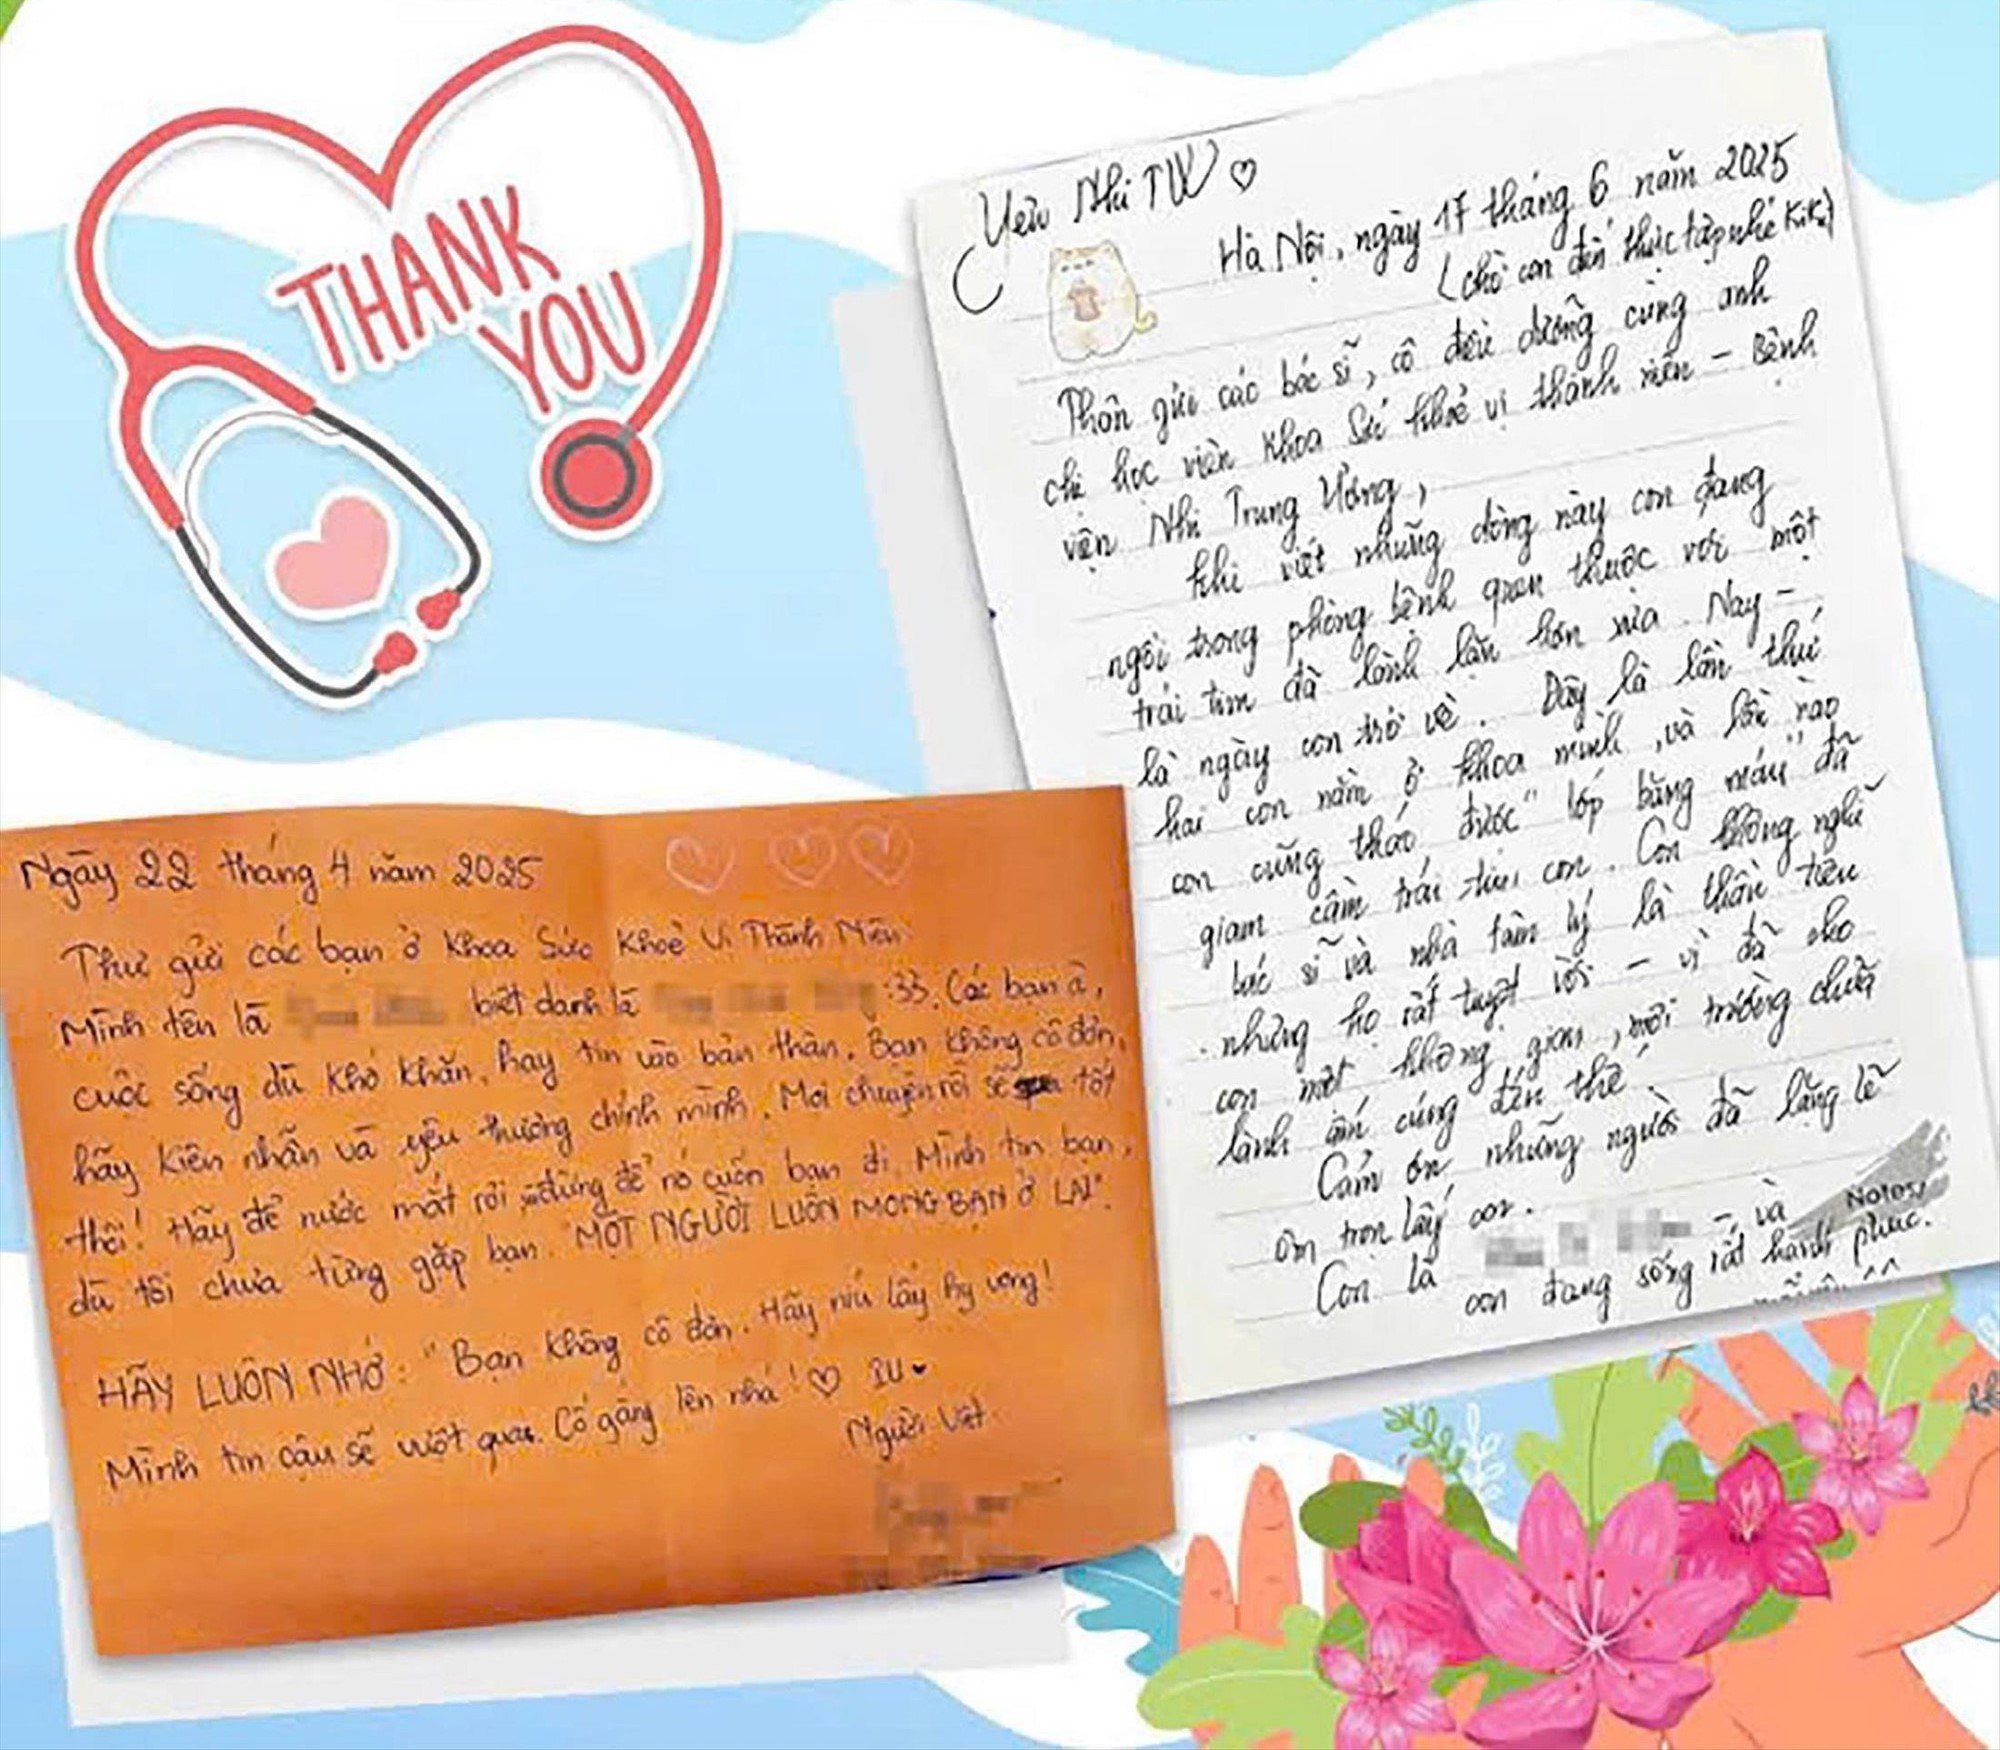 THANK
YOU
Yêu Nhi TW
Hà Nội, ngày 17 tháng 6 năm 2025
(chờ con đến thực tập nhé
Thân gửi các bác sĩ, cô điều dưỡng cùng anh
chị học viên khoa Sức khoẻ vị thành niên - Bệnh
viện Nhi Trung Ương,
Khi viết những dòng này con đang
ngồi trong phòng bệnh quen thuộc với một
trái tim đã lành lặn hơn xưa. Nay -
là ngày con trở về. Đây là lần thứ
hai con nằm ở khoa mình, và lần nào
con cũng tháo được "lớp băng máu" đã
giam cầm trái tim con. Con không nghĩ
bác sĩ và nhà tâm lý là thần tiên
nhưng họ rất tuyệt vời - vì đã cho
con một không gian, môi trường chữa
lành ấm cúng đến thế.
Cảm ơn những người đã lặng lẽ
ôm trọn lấy con.
Con là - và
con đang sống rất hạnh phúc.
Notes/
Ngày 22 tháng 4 năm 2025
Thư gửi các bạn ở khoa Sức Khoẻ Vị Thành Niên
Mình tên là biệt danh là :33. Các bạn à,
cuộc sống dù khó khăn, hãy tin vào bản thân. Bạn không cô đơn,
hãy kiên nhẫn và yêu thương chính mình. Mọi chuyện rồi sẽ tốt
thôi! Hãy để nước mắt rơi, đừng để nó cuốn bạn đi. Mình tin bạn,
dù tôi chưa từng gặp bạn. "MỘT NGƯỜI LUÔN MONG BẠN Ở LẠI".
HÃY LUÔN NHỚ: "Bạn không cô đơn. Hãy níu lấy hy vọng!
Mình tin cậu sẽ vượt qua. Cố gắng lên nhá!
Người viết